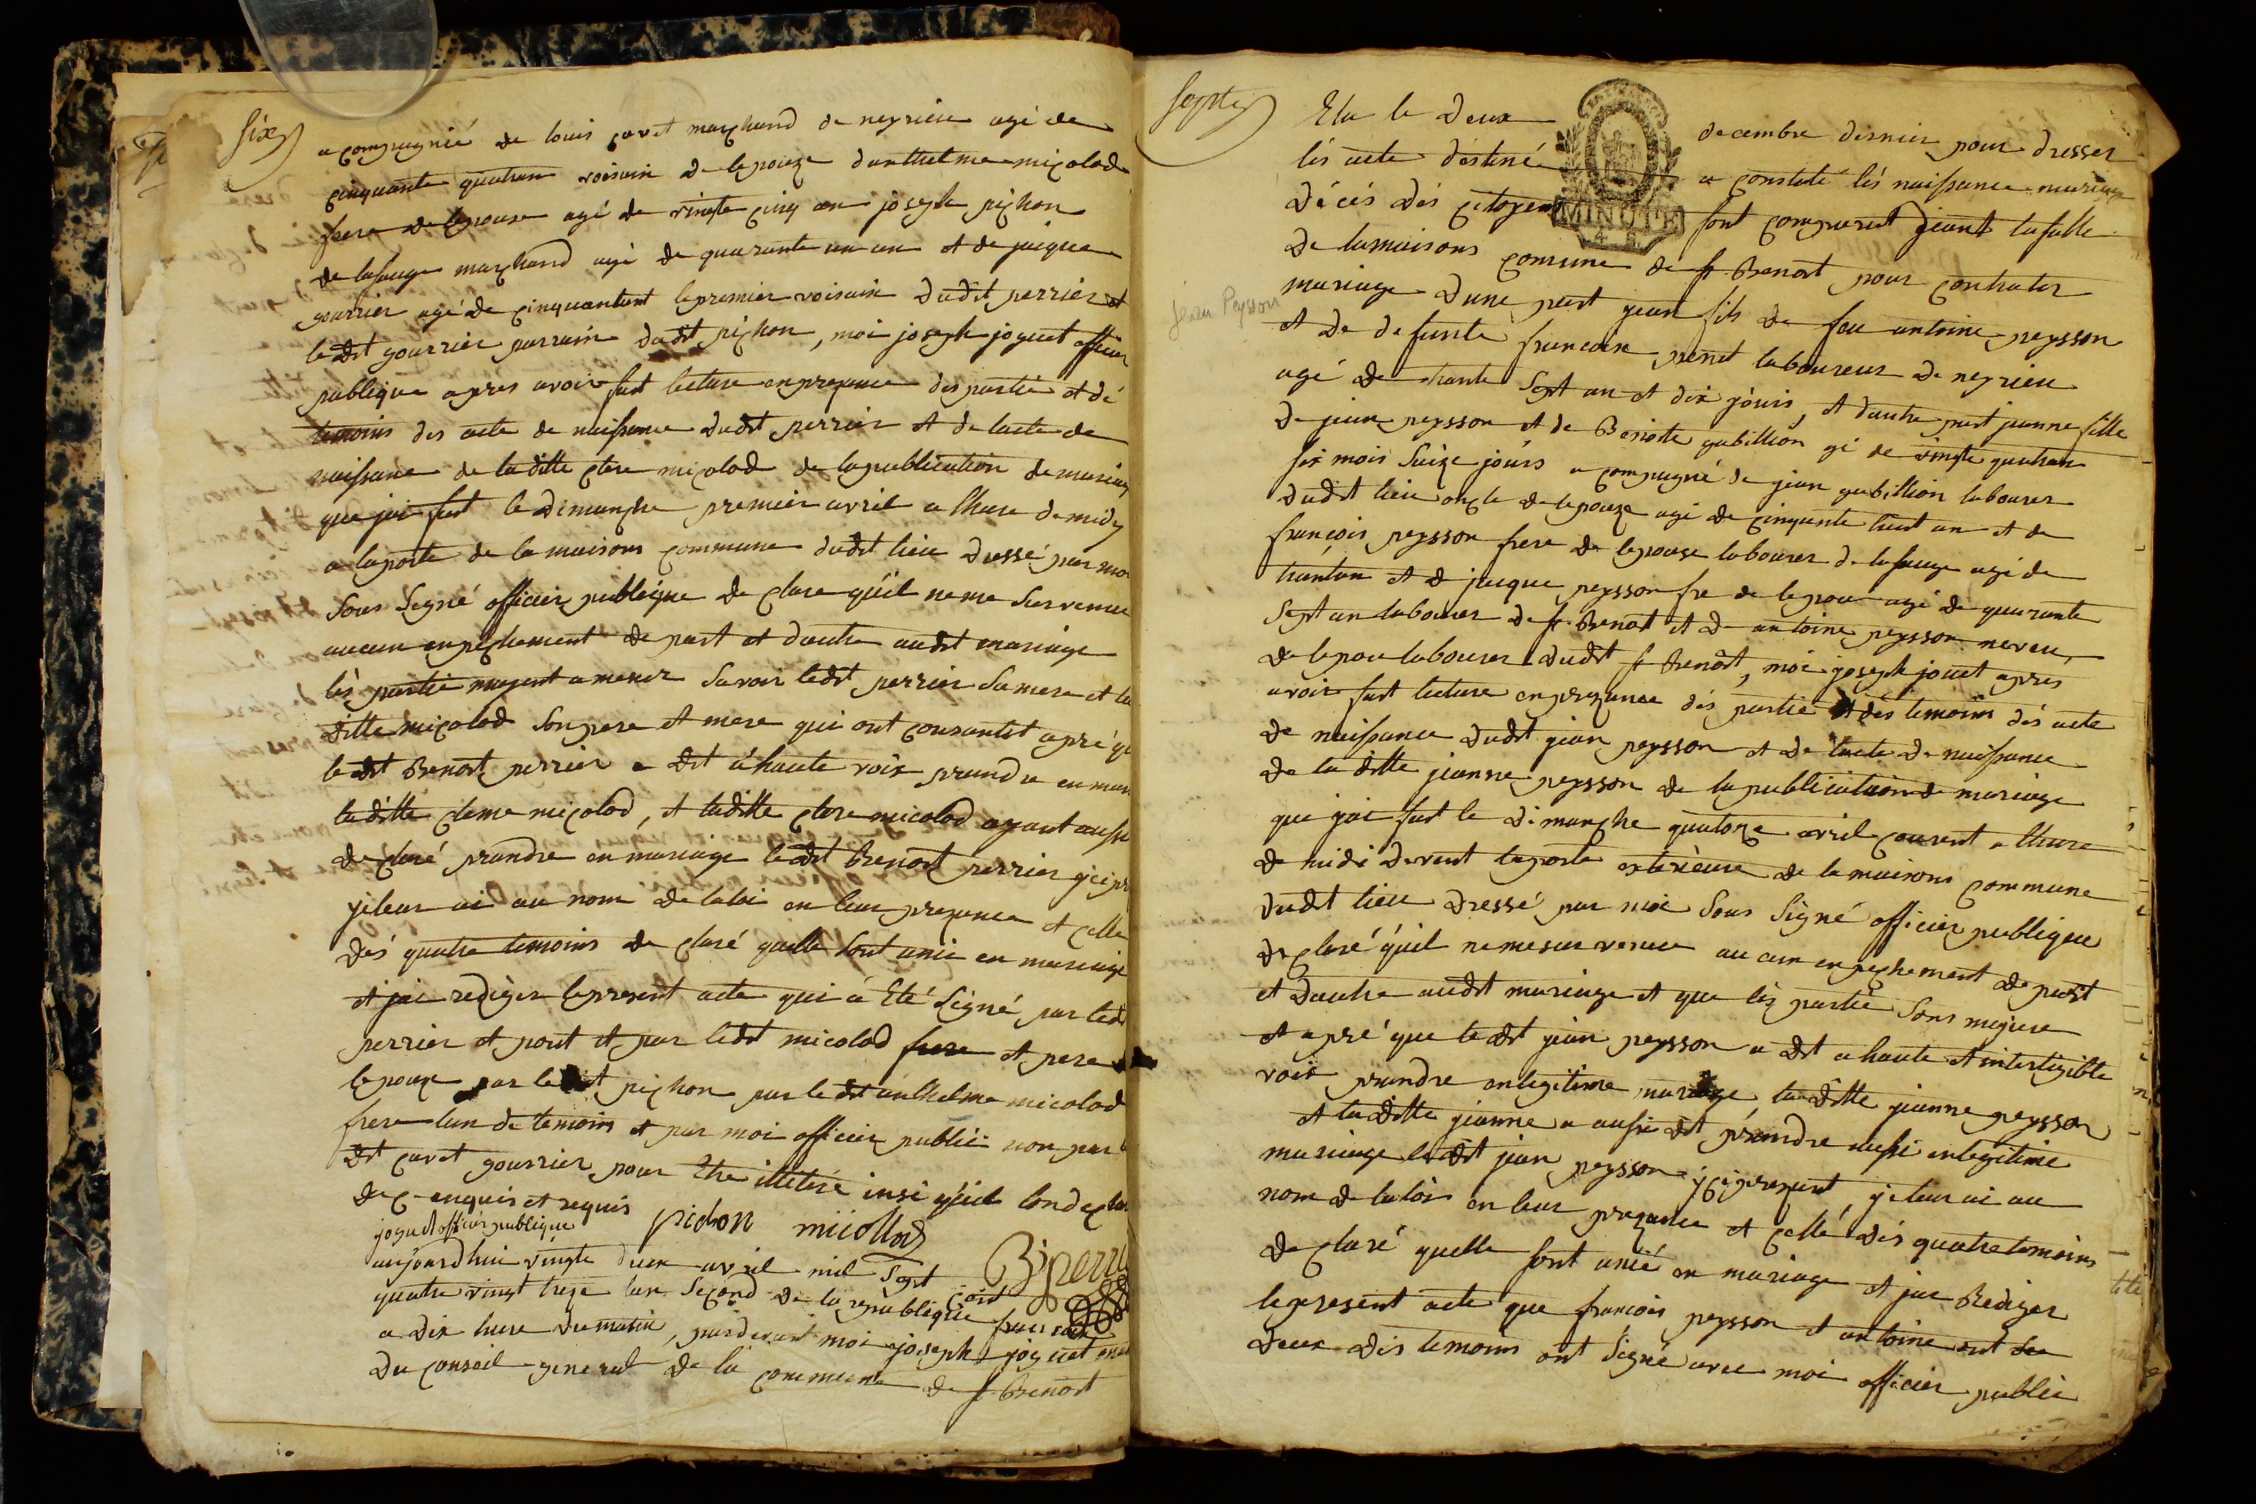 six
a compagnié de louis cavet marchand de neyrieu agé de
cinquante quatran voisain de lepouze danthelme micolod
frere de lepouse agé de vingte cinq an joseph pichon
de lasauge marchand agé de quarante un an et de jacque
gourrier agé de cinquantunt lepremier voisain dudit perrier et
ledit gourrier parrain dudit pichon, moi joseph joguet officier
publique apres avoir fait lecture enprezance des partie et dé
temoins des acte de naissance dudit perrier et de lacte de
naissance de laditte clere micolod de lapublication de mariag
que jai fait le dimanche premier avril a lhure de midy
a laporte de la maisons commune dudit lieu dressé par moi
sous signé officier publique de clare quil ne me survenue
aucun enpechement de part et dautre audit mariage
lés partie mayant amener savoir ledit perrier sa mere et la
ditte micolod son pere et mere qui ont consantit apré que
ledit Benoit perrier a dit á haute voix prandre en mari
laditte clere micolod, et laditte clere micolod ayant aussi
de claré prandre en mariage ledit Benoit perrier yci pr
yeleur ai au nom de laloi en leur prezance et celle
dés quatre temoins de claré quelle sont unie en mariage
et jai rediger lepresent acte qui á Eté signé par ledit
perrier et pont et par ledit micolod frere et pere
lepoux par ledit pichon par ledit anthelme micolod
frere lun de temoins et par moi officier public non par l
dit cavet gourrier pour Etre illiteré insi quil londeclare
de c enquis et requis
joguet officier publique pichon micollod
B perrier
aujourdhui vingte deux avril mil sept cent
quatre vingt treze lan second de la republique francaise
a dix hure du matin, pardevant moi joseph joguet
du conseil general de la commune de st Benoit
septe
Elu le deux decembre dernier pour dresser
lés acte destiné a constaté lés naissance mariage
décés dés citoyens sont comparut Jeant lasalle
MINUTE
4 S
de lamaisons comune de st Benoit pour contrater
jean Peysson
mariage dune part jean fils de feu antoine peysson
et de defunte francoise penet laboureur de neyrieu
agé de trante sept an et dix jours, et dautre part jeanne fille
de jean peysson et de Benoite gabillion gé de vingte quatran
six mois saize jours a compagné de jean gabillion labourer
dudit lieu oncle de lepouze agé de cinquante huit an et de
françois peysson frere de lepouse labourer de lasauge agé de
trantan et de jacque peysson fre de lepou agé de quarante
sept an labourer de st Benoit et de antoine peysson neveu
de lepou labourer dudit st Benoit, moi joseph jouet apres
avoir fait lecture enprezance dés partie et dés temoins dés acte
de naissance dudit jean peysson et de lacte de naissance
de la ditte jeanne peysson de la publication de mariage
que jai fait le dimanche quatorze avril courent a lhure
de midi devent laporte exterieure de la maisons commune
dudit lieu dressé par moi sous signé officier publique
de claré quil ne mesur venue au cun enpechement de part
et dautre audit mariage et que lés partie sons majeure
et apré que ledit jean peysson a dit a haute et interligible
voix prandre enlegitime mariage la ditte jeanne peysson
et la ditte jeanne a aussi dit prendre aussi enlegitime
mariage ledit jean peysson ycipresent, yeleur ai au
nom de la loi en leur prezance et cellé dés quatre temoins
de claré quelle sont unié en mariage et jai Rediger
lepresent acte que francois peysson et antoine ont
deux des temoins ont signé avec moi officier public